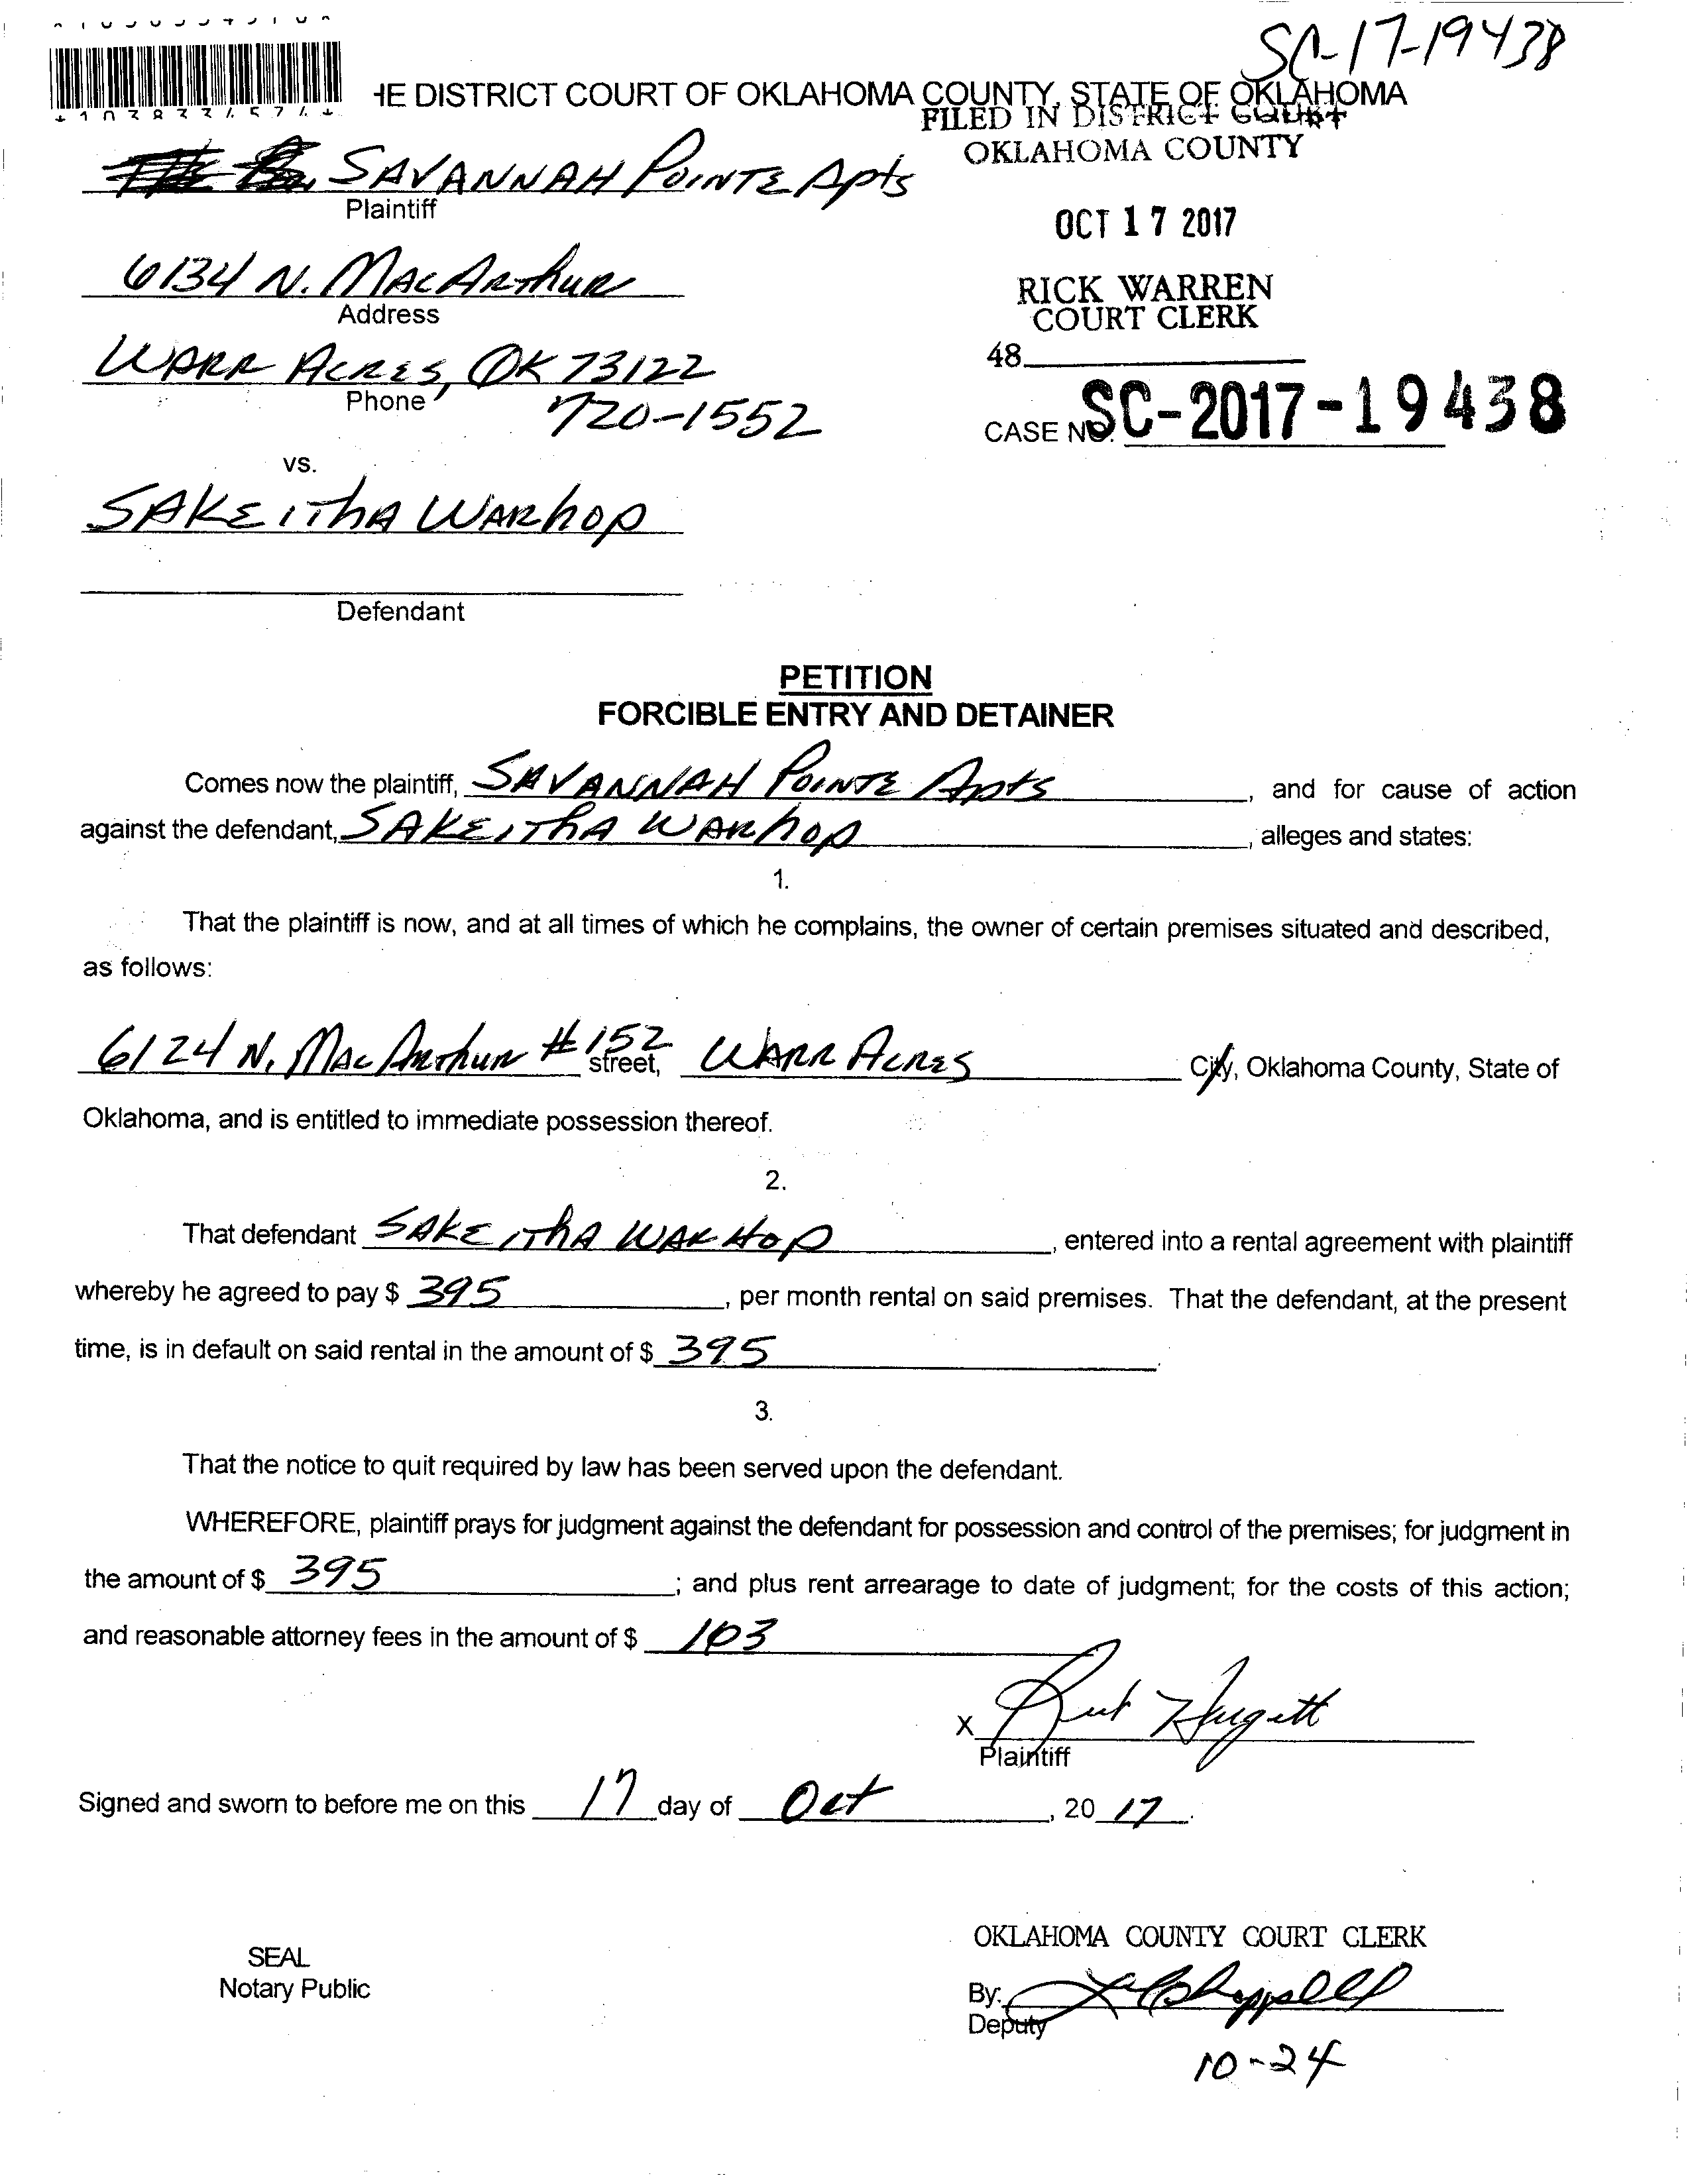 SC-17-19438
HE DISTRICT COURT OF OKLAHOMA COUNTY, STATE OF OKLAHOMA
FILED IN DISTRICT COURT
OKLAHOMA COUNTY
SAVANNAH POINTE Apts
Plaintiff
OCT 17 2017
6134 N. MacArthur
Address
RICK WARREN
COURT CLERK
WARR ACRES, OK 73122
48
Phone
720-1552
CASE NO. SC-2017-19438
vs.
SAKEITHA WARHOP
Defendant
PETITION
FORCIBLE ENTRY AND DETAINER
Comes now the plaintiff, SAVANNAH POINTE Apts, and for cause of action
against the defendant, SAKEITHA WARHOP, alleges and states:
1.
That the plaintiff is now, and at all times of which he complains, the owner of certain premises situated and described,
as follows:
6124 N. MacArthur #152 street, WARR ACRES City, Oklahoma County, State of
Oklahoma, and is entitled to immediate possession thereof.
2.
That defendant SAKEITHA WARHOP, entered into a rental agreement with plaintiff
whereby he agreed to pay $ 395, per month rental on said premises. That the defendant, at the present
time, is in default on said rental in the amount of $ 395.
3.
That the notice to quit required by law has been served upon the defendant.
WHEREFORE, plaintiff prays for judgment against the defendant for possession and control of the premises; for judgment in
the amount of $ 395; and plus rent arrearage to date of judgment; for the costs of this action;
and reasonable attorney fees in the amount of $ 103
X
Plaintiff
Signed and sworn to before me on this 17 day of Oct, 20 17.
OKLAHOMA COUNTY COURT CLERK
SEAL
Notary Public
By:
Deputy
10-24